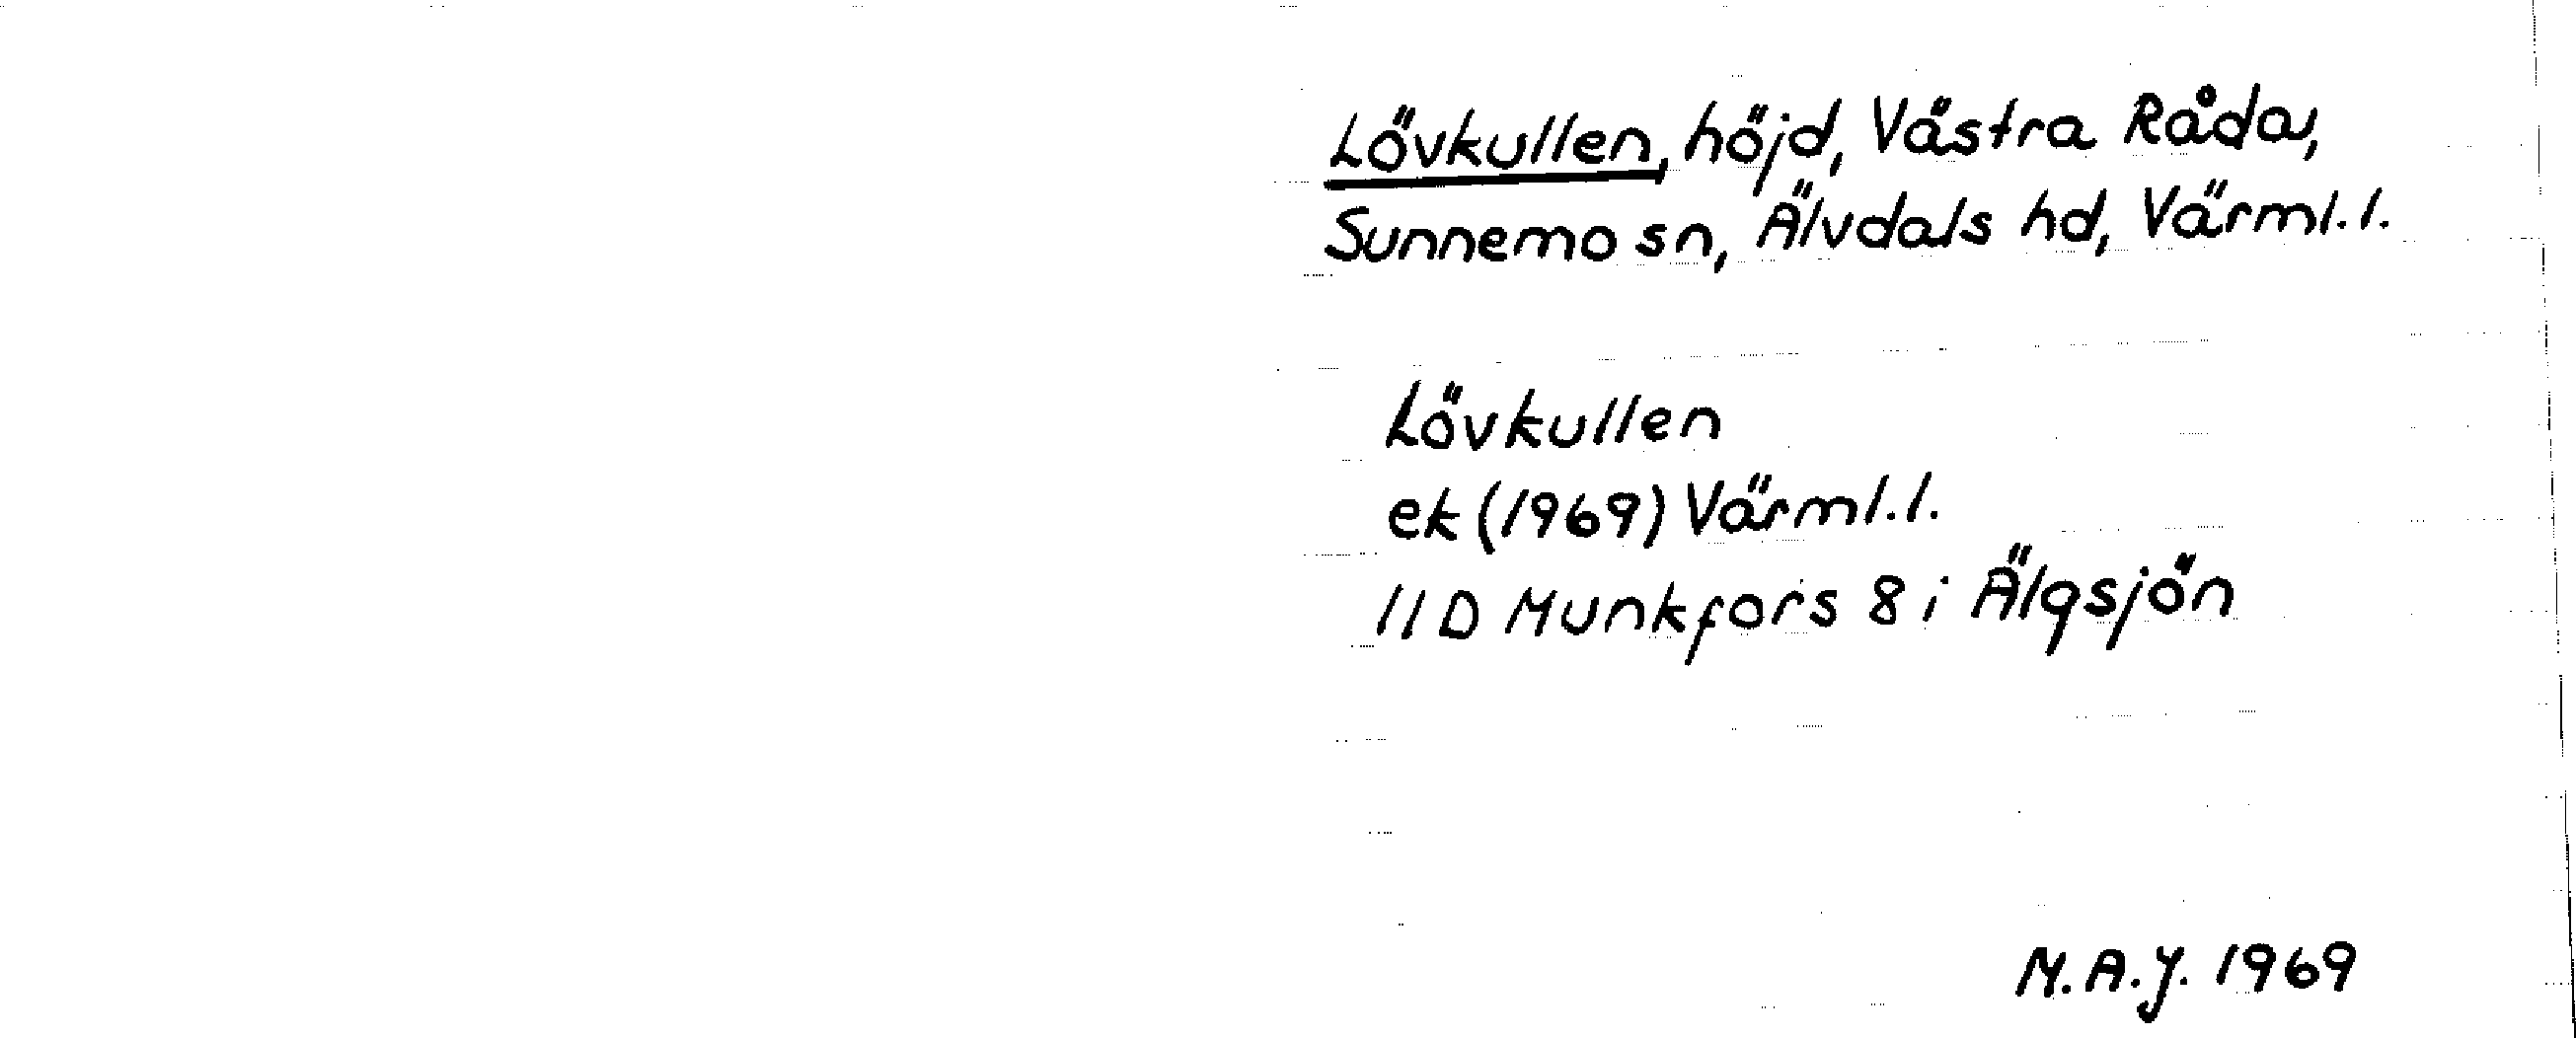 Lövkullen, höjd, Västra Råda,
Sunnemo sn, Älvdals hd, Värml.l.
Lövkullen
ek (1969) Värml.l.
11D Munkfors 8 i Älgsjön
M.A.J. 1969